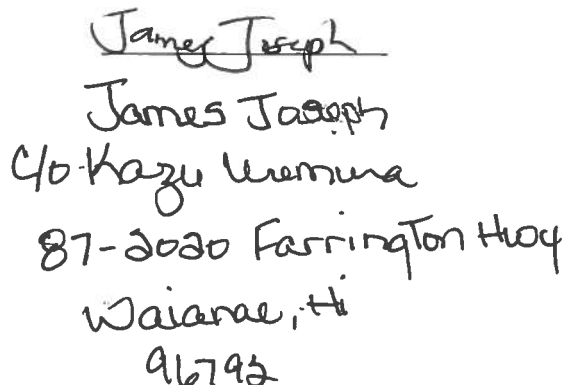 James Joseph
James Joseph
C/o Kazu Uemura
87-2020 Farrington Hwy
Waianae, Hi
96792